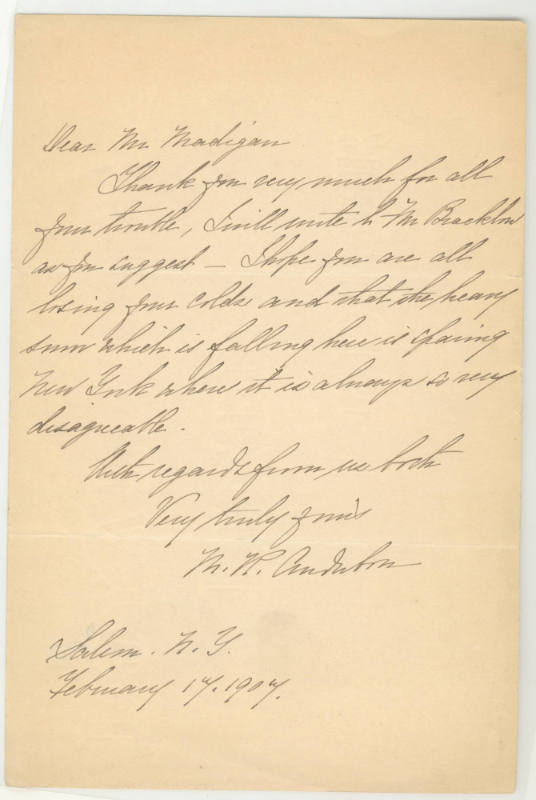 Dear Mr Madigan
Thank you very much for all
your trouble, I will write to Mr
as you suggest – I hope you are all
losing your colds and that the heavy
snow which is falling here is sparing
New York where it is always so very
disagreeable.
With regards from us both
Very truly yours
M. R. Audubon
Salem. N. Y.
February 17. 1907.